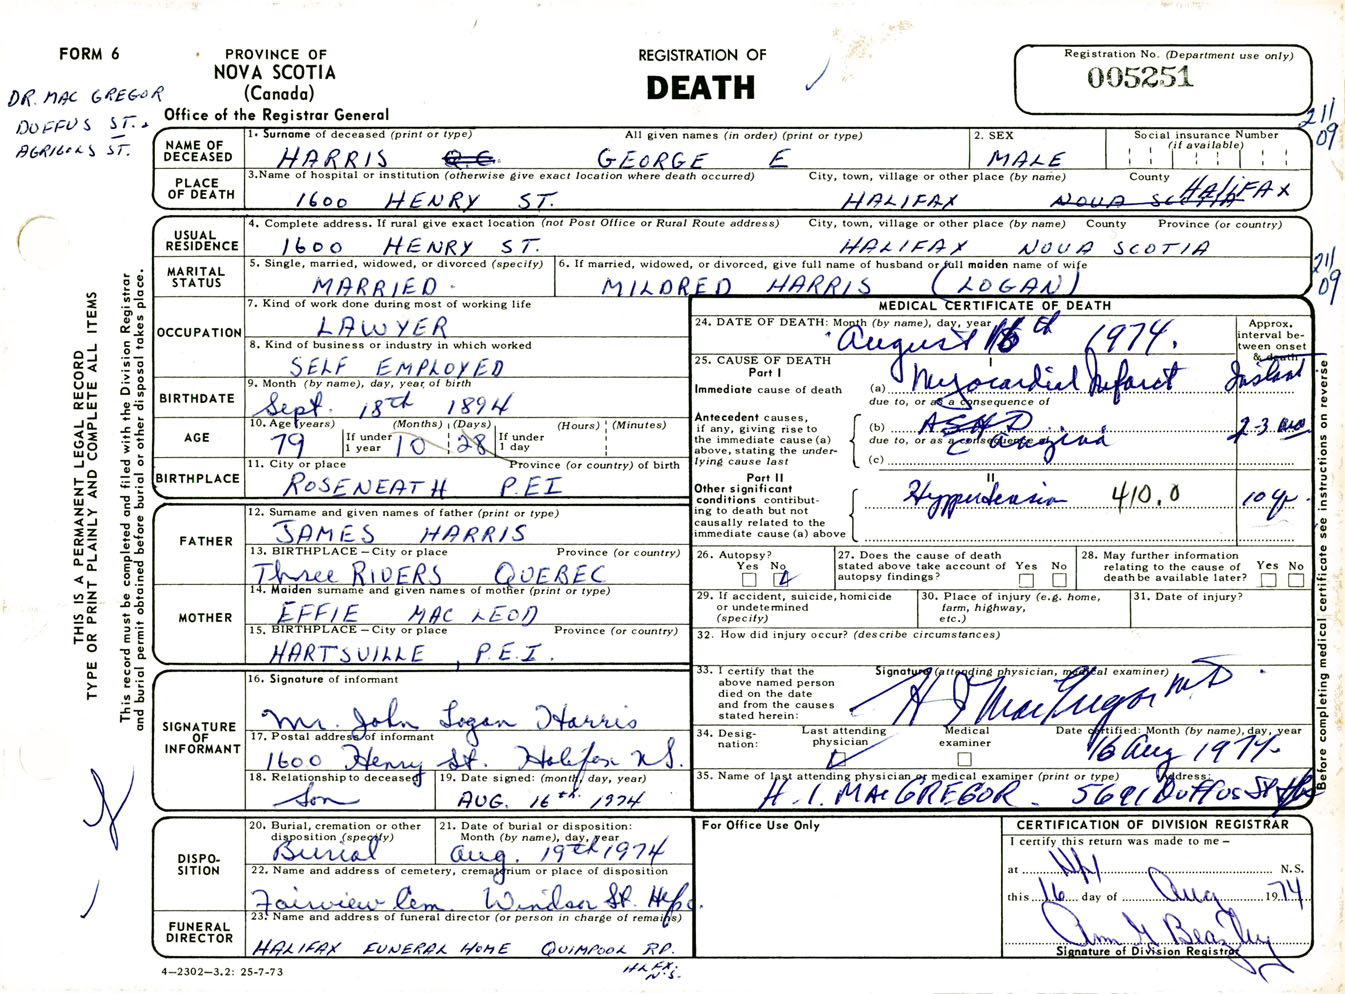 FORM 6
PROVINCE OF
NOVA SCOTIA
(Canada)
Office of the Registrar General
REGISTRATION OF
DEATH
Registration No. (Department use only)
005251
DR. MAC GREGOR
DUFFUS ST.
AGRICOLA ST.
211
09
NAME OF
DECEASED
1. Surname of deceased (print or type) All given names (in order) (print or type)
HARRIS Q.C. GEORGE E
2. SEX
MALE
Social insurance Number
(if available)
PLACE
OF DEATH
3. Name of hospital or institution (otherwise give exact location where death occurred) City, town, village or other place (by name) County
1600 HENRY ST. HALIFAX NOVA SCOTIA HALIFAX
USUAL
RESIDENCE
4. Complete address. If rural give exact location (not Post Office or Rural Route address) City, town, village or other place (by name) County Province (or country)
1600 HENRY ST. HALIFAX NOVA SCOTIA
211
09
MARITAL
STATUS
5. Single, married, widowed, or divorced (specify)
MARRIED
6. If married, widowed, or divorced, give full name of husband or full maiden name of wife
MILDRED HARRIS (LOGAN)
OCCUPATION
7. Kind of work done during most of working life
LAWYER
8. Kind of business or industry in which worked
SELF EMPLOYED
BIRTHDATE
9. Month (by name), day, year of birth
Sept. 18th 1894
AGE
10. Age (years) (Months) (Days) (Hours) (Minutes)
79 If under 1 year 10 28 If under 1 day
BIRTHPLACE
11. City or place Province (or country) of birth
ROSENEATH P.EI
FATHER
12. Surname and given names of father (print or type)
JAMES HARRIS
13. BIRTHPLACE – City or place Province (or country)
Three RIVERS QUEBEC
MOTHER
14. Maiden surname and given names of mother (print or type)
EFFIE MAC LEOD
15. BIRTHPLACE – City or place Province (or country)
HARTSVILLE, P.E.I.
SIGNATURE
OF
INFORMANT
16. Signature of informant
Mr. John Logan Harris
17. Postal address of informant
1600 Henry St. Halifax N.S.
18. Relationship to deceased
Son
19. Date signed: (month, day, year)
AUG. 16th 1974
DISPO-
SITION
20. Burial, cremation or other
disposition (specify)
Burial
21. Date of burial or disposition:
Month (by name), day, year
Aug. 19th 1974
22. Name and address of cemetery, crematorium or place of disposition
Fairview Cem. Windsor St. Hfx.
FUNERAL
DIRECTOR
23. Name and address of funeral director (or person in charge of remains)
HALIFAX FUNERAL HOME QUINPOOL RD.
HLFX.
N.S.
4–2302–3.2: 25-7-73
MEDICAL CERTIFICATE OF DEATH
24. DATE OF DEATH: Month (by name), day, year
August 16th 1974.
Approx.
interval be-
tween onset
& death
25. CAUSE OF DEATH
Part I
Immediate cause of death
(a) Myocardial Infarct Instant
due to, or as a consequence of
Antecedent causes,
if any, giving rise to
the immediate cause (a)
above, stating the under-
lying cause last
(b) ASHD
2-3
due to, or as a consequence of
c angina
(c)
Part II
Other significant
conditions contribut-
ing to death but not
causally related to the
immediate cause (a) above
II
Hypertension 410.0 10 yr.
26. Autopsy?
Yes No
27. Does the cause of death
stated above take account of
autopsy findings?
Yes No
28. May further information
relating to the cause of
death be available later?
Yes No
29. If accident, suicide, homicide
or undetermined
(specify)
30. Place of injury (e.g. home,
farm, highway,
etc.)
31. Date of injury?
32. How did injury occur? (describe circumstances)
33. I certify that the
above named person
died on the date
and from the causes
stated herein:
Signature (attending physician, medical examiner)
H I MacGregor MD
34. Desig-
nation:
Last attending
physician
Medical
examiner
Date certified: Month (by name), day, year
16 Aug 1974
35. Name of last attending physician or medical examiner (print or type) Address:
H. I. MACGREGOR. 5691 DUFFUS St Hfx
For Office Use Only
CERTIFICATION OF DIVISION REGISTRAR
I certify this return was made to me –
at Hfx N.S.
this 16 day of Aug 1974
Signature of Division Registrar
THIS IS A PERMANENT LEGAL RECORD
TYPE OR PRINT PLAINLY AND COMPLETE ALL ITEMS
This record must be completed and filed with the Division Registrar
and burial permit obtained before burial or other disposal takes place.
Before completing medical certificate see instructions on reverse